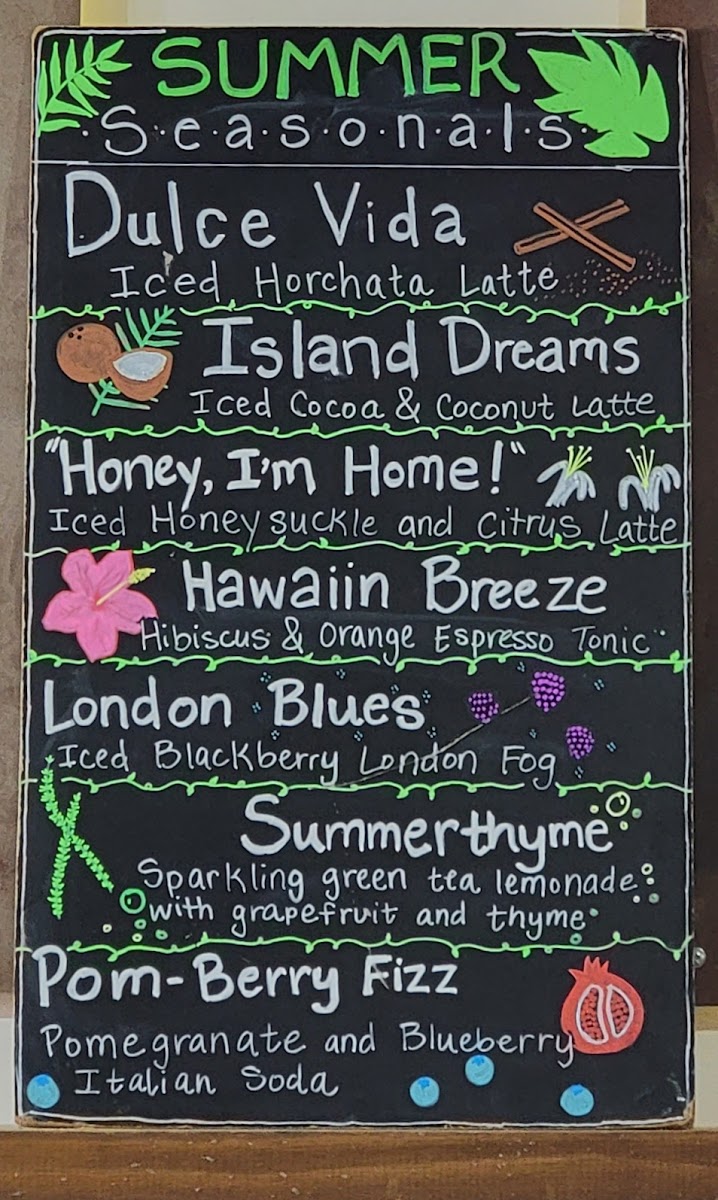 SUMMER
·S·e·a·s·o·n·a·l·s·
Dulce Vida
Iced Horchata Latte
Island Dreams
Iced Cocoa & Coconut Latte
"Honey, I'm Home!"
Iced Honeysuckle and Citrus Latte
Hawaiin Breeze
Hibiscus & Orange Espresso Tonic
London Blues
Iced Blackberry London Fog
Summerthyme
Sparkling green tea lemonade
with grapefruit and thyme
Pom-Berry Fizz
Pomegranate and Blueberry
Italian Soda